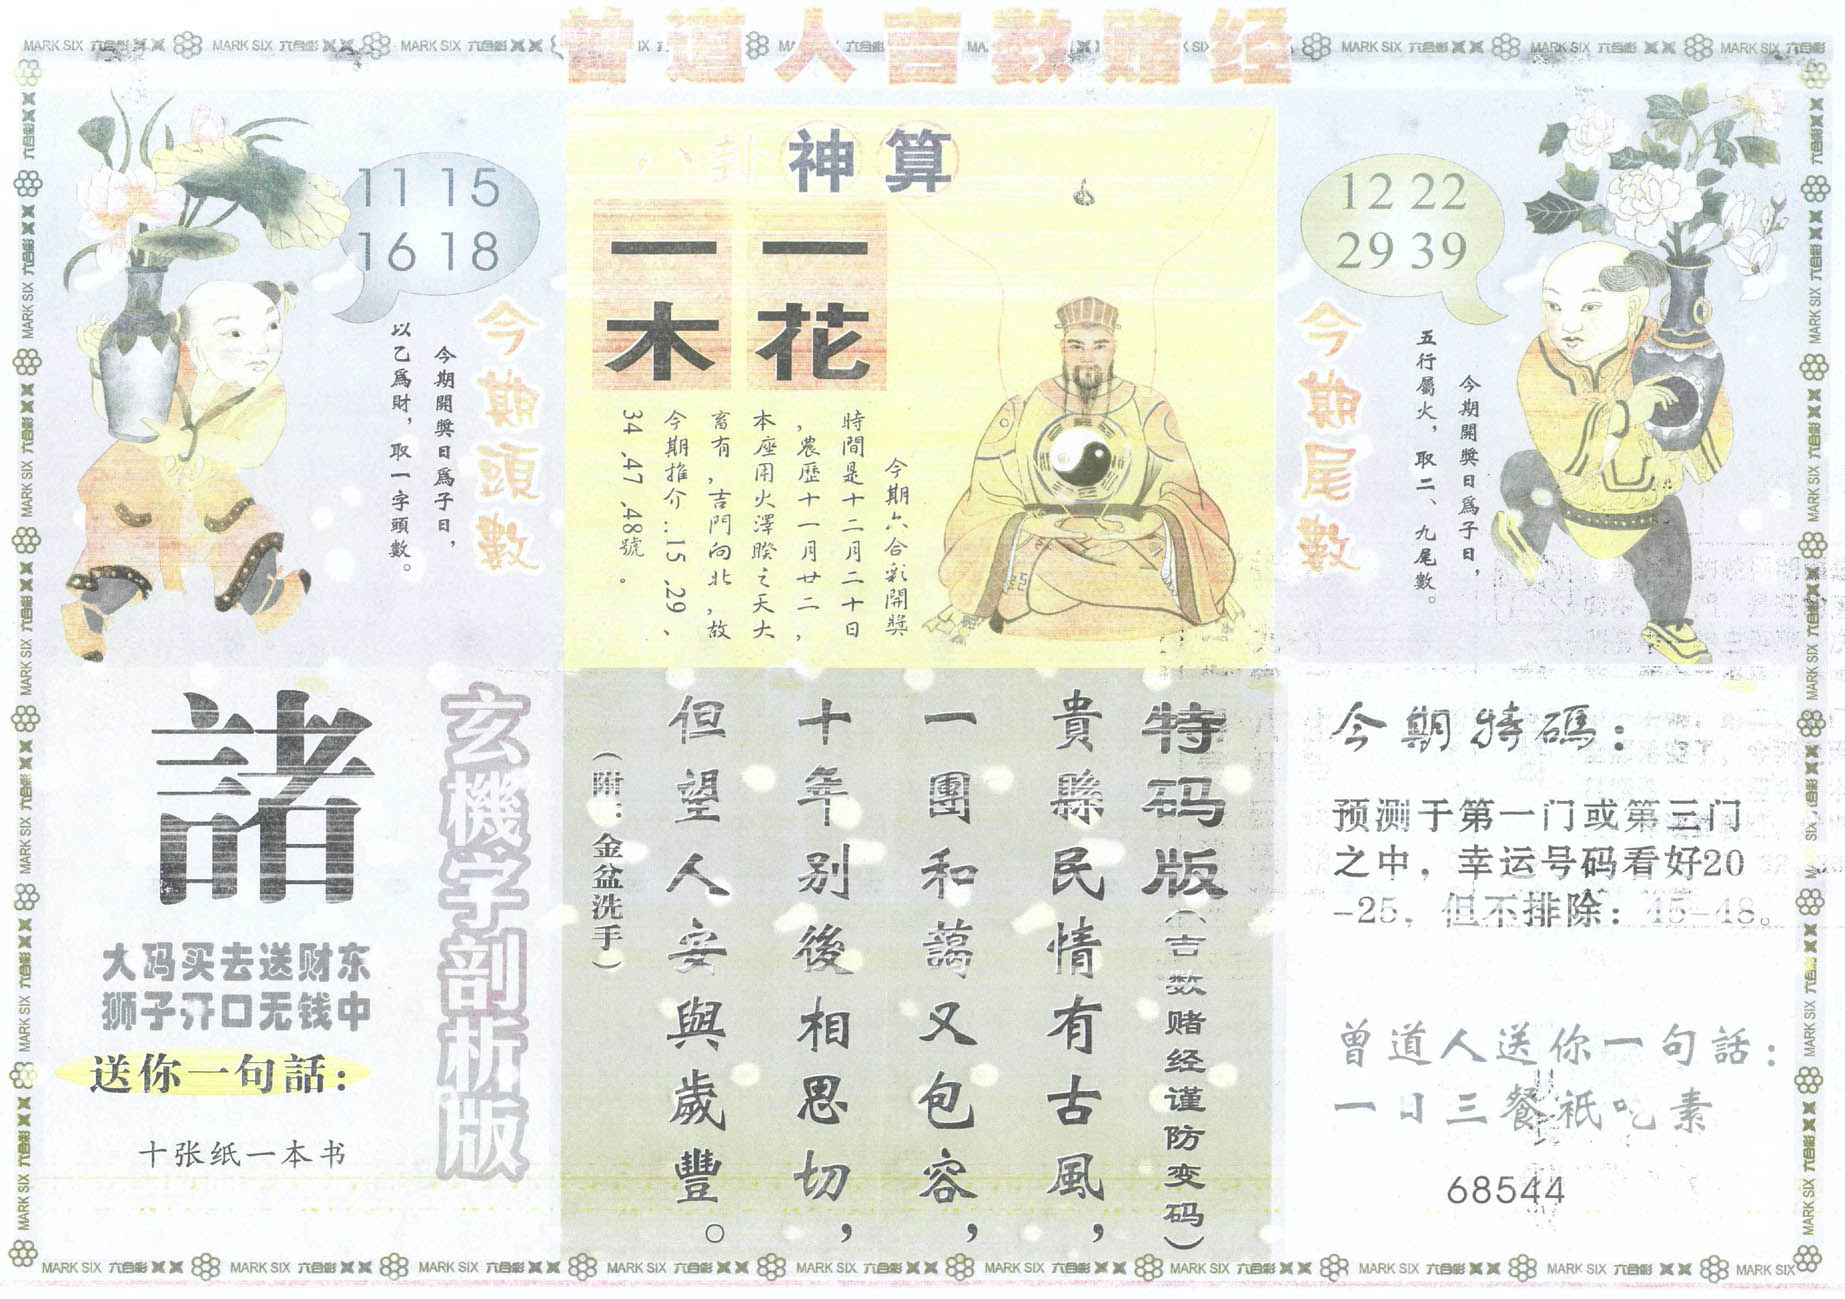 曾道人吉数赌经
MARK SIX 六合彩
11 15
16 18
今期頭數
今期開獎日爲子日，
以乙爲財，取一字頭數。
八卦神算
一花
一木
今期六合彩開獎
時間是十二月二十日
，農歷十一月廿二，
本座用火澤睽之天大
畜有，吉門向北，故
今期推介：15、29、
34、47、48號。
12 22
29 39
今期尾數
今期開獎日爲子日，
五行屬火，取二、九尾數。
玄機字剖析版
諸
大码买去送财东
狮子开口无钱中
送你一句話：
十张纸一本书
特码版（吉数赌经谨防变码）
貴縣民情有古風，
一團和藹又包容，
十年别後相思切，
但望人安與歲豐。
（附：金盆洗手）
今期特碼：
预测于第一门或第三门
之中，幸运号码看好20
-25，但不排除：45-48。
曾道人送你一句話：
一日三餐祇吃素
68544